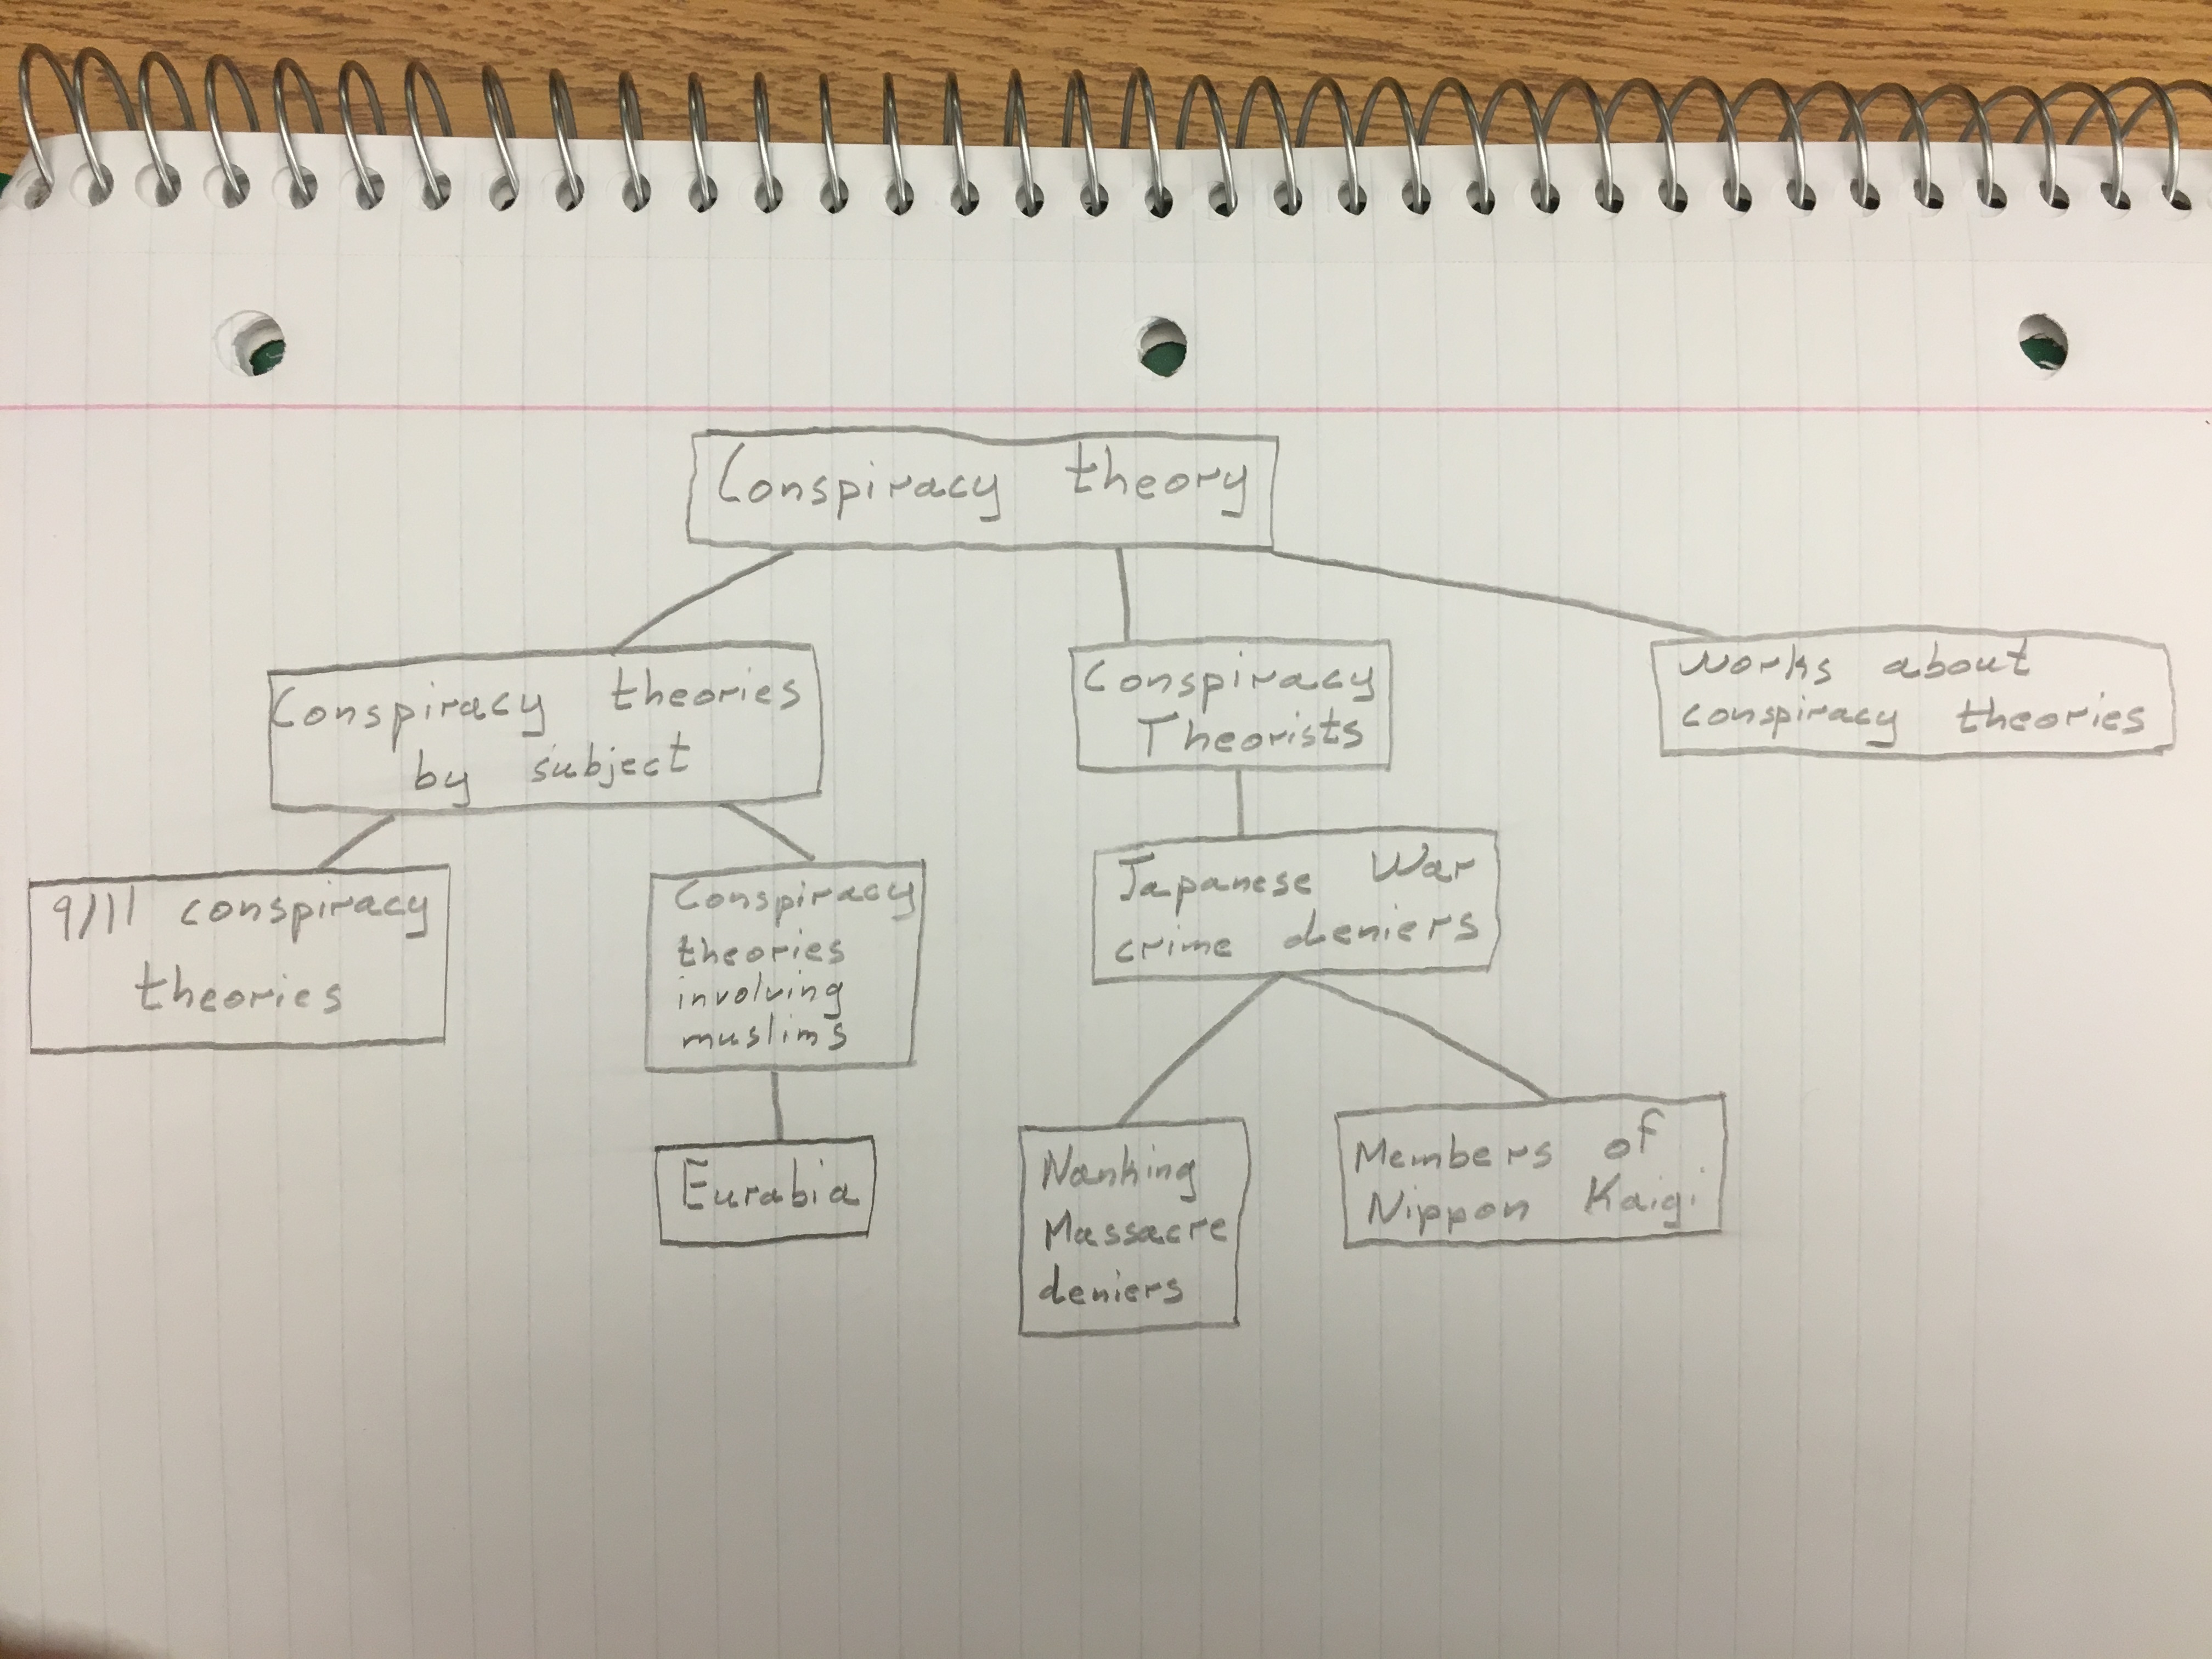 Conspiracy theory
Conspiracy theories
by subject
Conspiracy
Theorists
works about
conspiracy theories
9/11 conspiracy
theories
Conspiracy
theories
involving
muslims
Japanese War
crime deniers
Eurabia
Nanking
Massacre
deniers
Members of
Nippon Kaigi